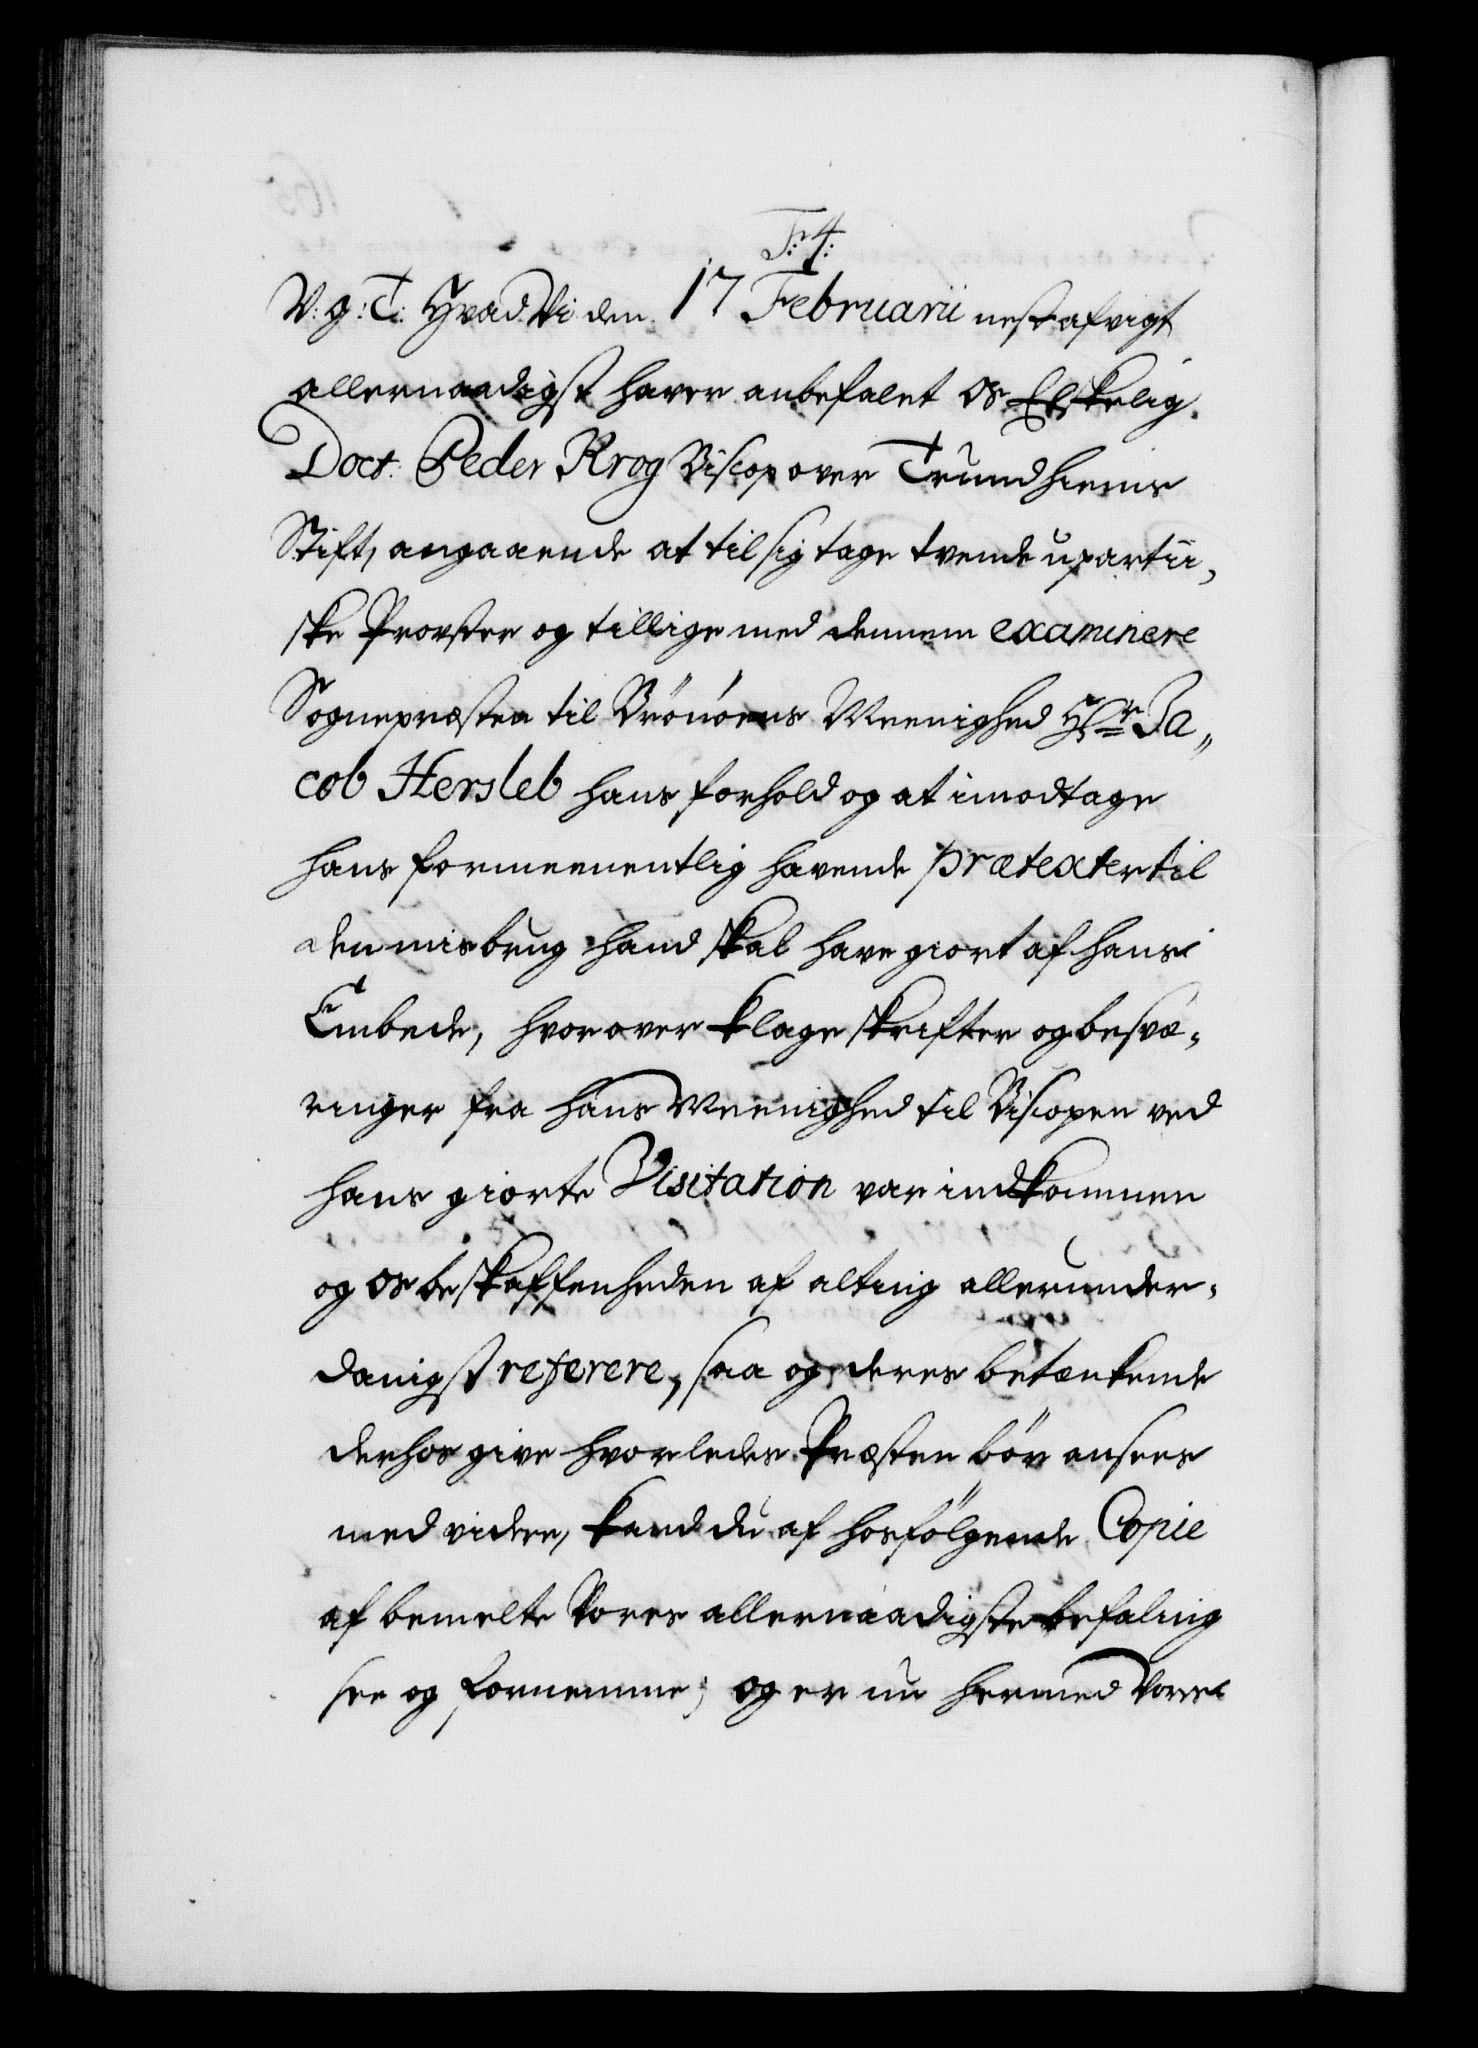 F: 4:
V: g: T: Hvad Vi den 17 Februarii nest afvigt
allernaadigst haver anbefalet Os Elskelig
Doct: Peder Krog Biscop over Trundhiems
Stift, angaaende at til sig tage tvende upartii,
ske Provster og tillige med dennem examinere
Sognepræsten til Brönöens Meenighed Hr Ja„
cob Hersleb hans forhold og at imodtage
hans formeenentlig havende prætexter til
den misbrug hand skal have giort af hans
Embede, hvorover klage skrifter og besvæ-
ringer fra hans Meenighed til Biscopen ved
hans giorte Visitation var indkommen
og os beskaffenheden af alting allerunder-
danigst referere, saa og deres betænkende
derhos give hvorledes Præsten bör ansees
med videre, kand du af hosfölgende Copie
af bemelte Vores allernaadigste befaling
see og fornemme; og er nu hermed Vores